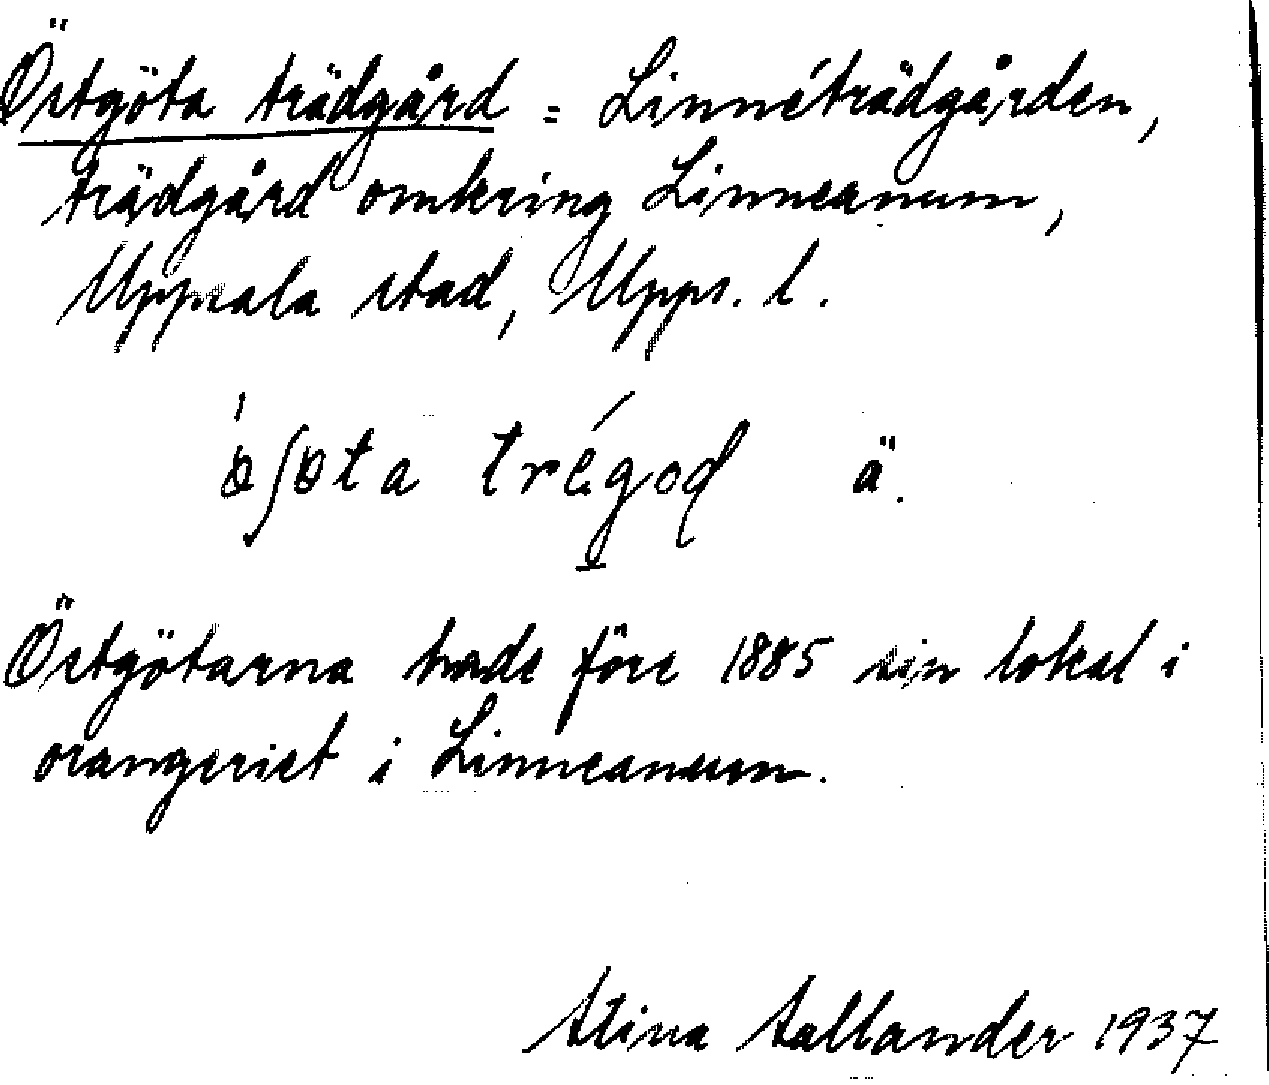 Östgöta trädgård = Linnéträdgården,
trädgård omkring Linneanum,
Uppsala stad, Upps. l.
ǿʃøta trégoɖ ä.
Östgötarna hade före 1885 sin lokal i
orangeriet i Linneanum.
Stina 1937